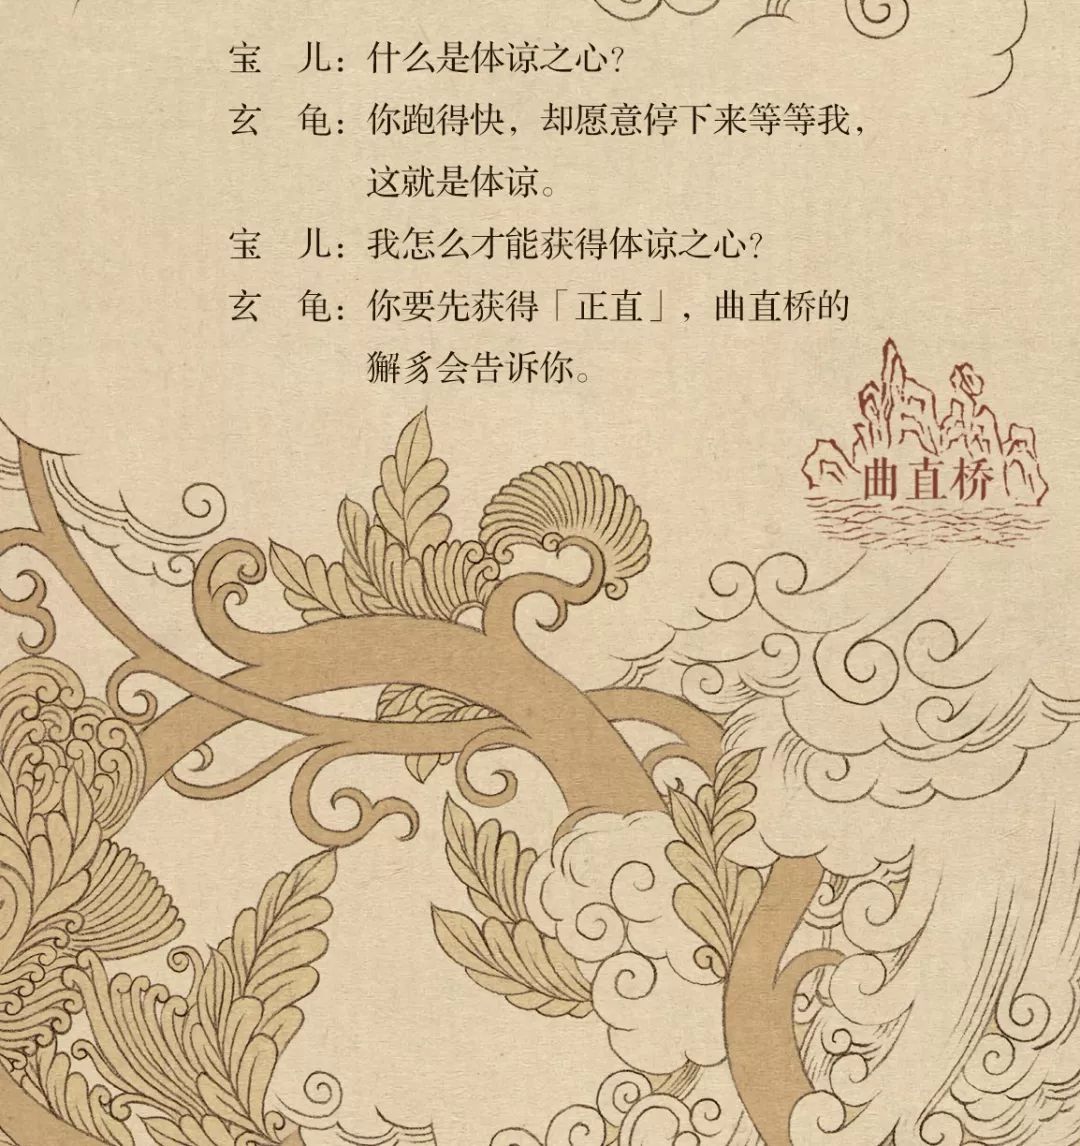 宝　儿：什么是体谅之心？
玄　龟：你跑得快，却愿意停下来等等我，
这就是体谅。
宝　儿：我怎么才能获得体谅之心？
玄　龟：你要先获得「正直」，曲直桥的
獬豸会告诉你。
曲直桥